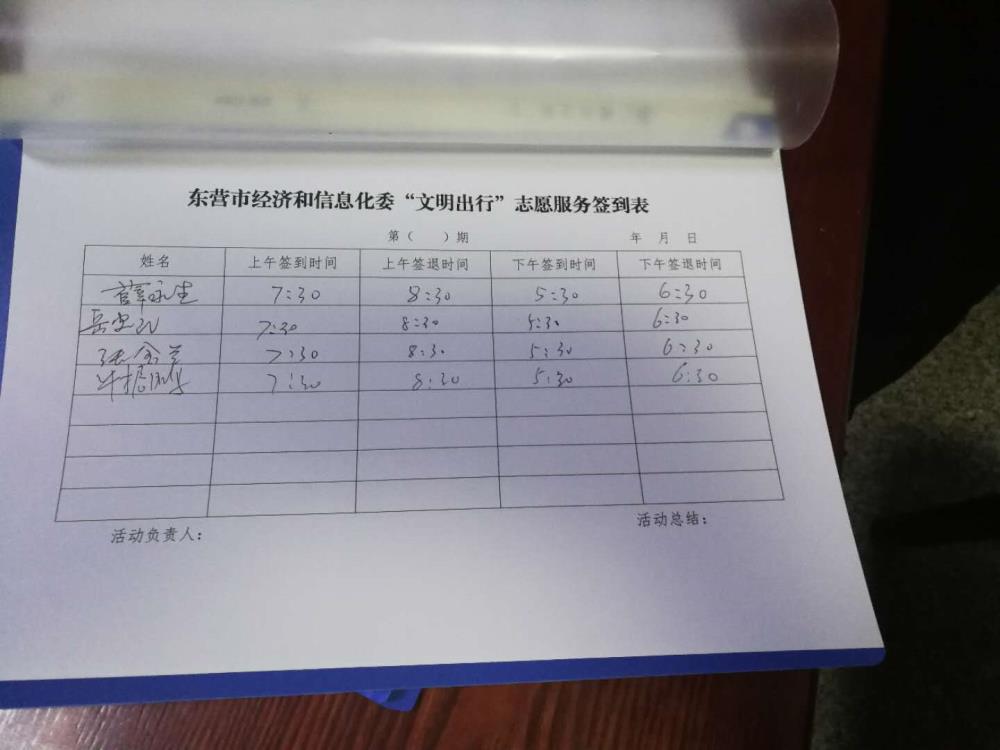 东营市经济和信息化委“文明出行”志愿服务签到表
第（ ）期 年 月 日
姓名 上午签到时间 上午签退时间 下午签到时间 下午签退时间
薛永生 7:30 8:30 5:30 6:30
7:30 8:30 5:30 6:30
7:30 8:30 5:30 6:30
7:30 8:30 5:30 6:30
活动负责人： 活动总结：